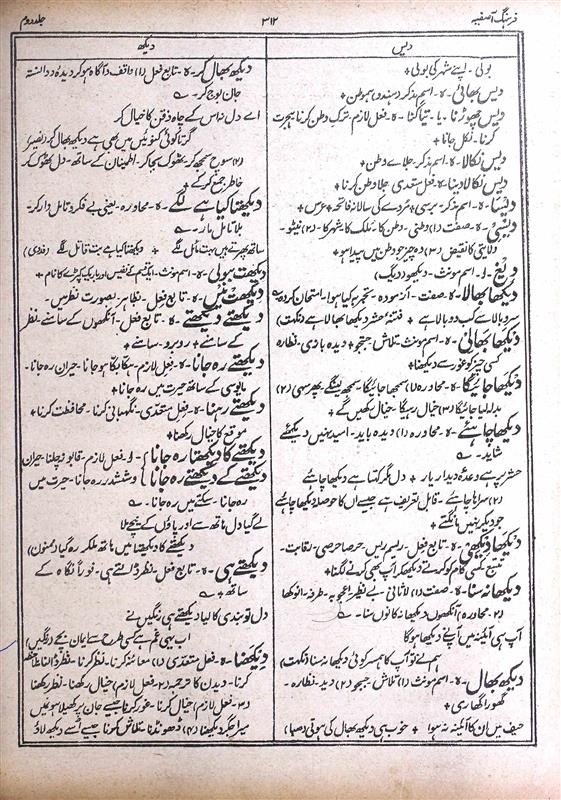 فرہنگ آصفیہ
۳۱۲
جلد دوم
دیس
دیکھ
بولی۔ اپنے شہر کی بولی +
دیس بھائی۔ ہ۔ اسم مذکر (ہندو) ہموطن +
دیس چھوڑنا۔ یا۔ تیاگنا۔ ہ۔ فعل لازم۔ ترک وطن کرنا۔ ہجرت
کرنا۔ نکل جانا +
دیس نکالا۔ ہ۔ اسم مذکر۔ جلاے وطن +
دیس نکالا دینا۔ ہ۔ فعل متعدی۔ جلا وطن کرنا +
دیسا۔ ہ۔ اسم مذکر۔ برسی۔ مردے کی سالانہ فاتحہ۔ عرس +
دیسی۔ ہ۔ صفت (۱) وطنی۔ وطن کا۔ ملک کا۔ شہر کا۔ (۲) نیٹو۔
ولایتی کا نقیض (۳) وہ چیز جو وطن میں پیدا ہو +
دیغ۔ و۔ اسم مونث۔ دیکھو (دیگ)
دیکھا بھالا۔ ہ۔ صفت۔ آزمودہ۔ تجربہ کیا ہوا۔ امتحان کردہ
سرو بالا سے کب دو بالا ہے + فتنۂ حشر دیکھا بھالا ہے (نکہت)
دیکھا بھالی۔ ہ۔ اسم مونث۔ تلاش۔ جستجو + دیدہ بادی۔ نظارہ
کسی چیز کو غور سے دیکھنا +
دیکھا جائیگا۔ ہ۔ محاورہ (۱) سمجھا جائیگا۔ سمجھ لینگے۔ پھر سہی (۲)
بدلا لیا جائیگا (۳) خیال رہیگا۔ خیال رکھیں گے +
دیکھا چاہیئے۔ ہ۔ محاورہ (۱) دیدہ باید۔ امید نہیں دیکھئے
شاید۔
حشر پر ہے وعدۂ دیدار یار + دل مگر کہتا ہے دیکھا چاہئے
(۲) سراہا چاہئے۔ قابل تعریف ہے جیسے اس کا حوصلہ دیکھا چاہئے
جو دیکر نہیں مانگتے +
دیکھا دیکھی۔ ہ۔ تابع فعل۔ ریسم ریس۔ حرصا حرصی۔ رقابت۔
تتبع۔ کسی کام کو کرتے دیکھکر آپ بھی کرنے لگنا +
دیکھا نہ سنا۔ ہ۔ صفت (۱) لاثانی۔ بے نظیر۔ اعجوبہ۔ طرفہ۔ انوکھا
(۲) محاورہ) آنکھوں دیکھا نہ کانوں سنا۔
آپ ہی آئینہ میں آپنے دیکھا ہوگا
ہم نے تو آپ کا ہمسر کوئی دیکھا نہ سنا (نکہت)
دیکھ بھال۔ ہ۔ اسم مونث (۱) تلاش۔ جستجو (۲) دید۔ نظارہ۔
گھورا گھاری +
حیف میں ان کا آئینہ نہ ہوا + خوب ہی دیکھ بھال کی ہوتی (صبا)
دیکھ بھال کر۔ ہ۔ تابع فعل (۱) واقف و آگاہ ہو کر دیدہ و دانستہ
جان بوج کر۔
اے دل نہ اس کے چاہ ذقن کا خیال کر
گرتا کوئی کنوئیں میں بھی ہے دیکھ بھال کر (نصیر)
(۲) سوچ سمجھ کر۔ ٹھوک بجا کر۔ اطمینان کے ساتھ۔ دل ٹھوک کر
خاطر جمع کر کے +
دیکھتا کیا ہے لگے۔ ہ۔ محاورہ۔ یعنی بے فکر و تامل وار کر۔
بلا تامل مار۔
ساتھ پھرتے ہیں بہت مائل لگے + دیکھتا کیا ہے بت قاتل لگے (فدوی)
دیکھت بھولی۔ ہ۔ اسم مونث۔ ایک قسم کے نفیس اور باریک کپڑے کا نام +
دیکھت میں۔ ہ۔ تابع فعل۔ بظاہر۔ بصورت نظر میں۔
دیکھتے دیکھتے۔ ہ۔ تابع فعل۔ آنکھوں کے سامنے۔ نظر
کے سامنے + روبرو۔ سامنے +
دیکھتے رہ جانا۔ ہ۔ فعل لازم۔ ہکا بکا ہو جانا۔ حیران رہ جانا۔
مایوسی کے ساتھ حیرت میں رہ جانا +
دیکھتے رہنا۔ ہ۔ فعل متعدی۔ نگہبانی کرنا۔ محافظت کرنا +
موقع کا خیال رکھنا +
دیکھتے کا دیکھتا رہ جانا } ۔ و۔ فعل لازم۔ قابو نہ چلنا۔ حیران
دیکھتے کے دیکھتے رہ جانا } و ششدر رہ جانا۔ حیرت میں
رہ جانا۔ سکتے میں رہ جانا۔
لے گیا دل ہاتھ سے اور پاؤں کے نیچے ملا
دیکھتے کا دیکھتا میں ہاتھ ملکر رہ گیا (ممنون)
دیکھتے ہی۔ ہ۔ تابع فعل۔ نظر ڈالتے ہی۔ فوراً نگاہ کے
ساتھ +
دل تو بندی کا لیا دیکھتے ہی رنگیں نے
اب بہی غم ہے کسی طرح سے ایمان بچے (رنگین)
دیکھنا۔ ہ۔ فعل متعدی (۱) معائنہ کرنا۔ نظر کرنا۔ نظر ڈالنا۔
کرنا۔ دیدن کا ترجمہ (۲۔ فعل لازم) خیال رکھنا۔ نظر رکھنا
(۳۔ فعل لازم) خیال کرنا۔ غور کرنا جیسے جان پر کھیلا ہوں میں
میرا جگر دیکھنا (۴) ڈھونڈنا۔ تلاش کرنا جیسے اُسے دیکھ لاؤ